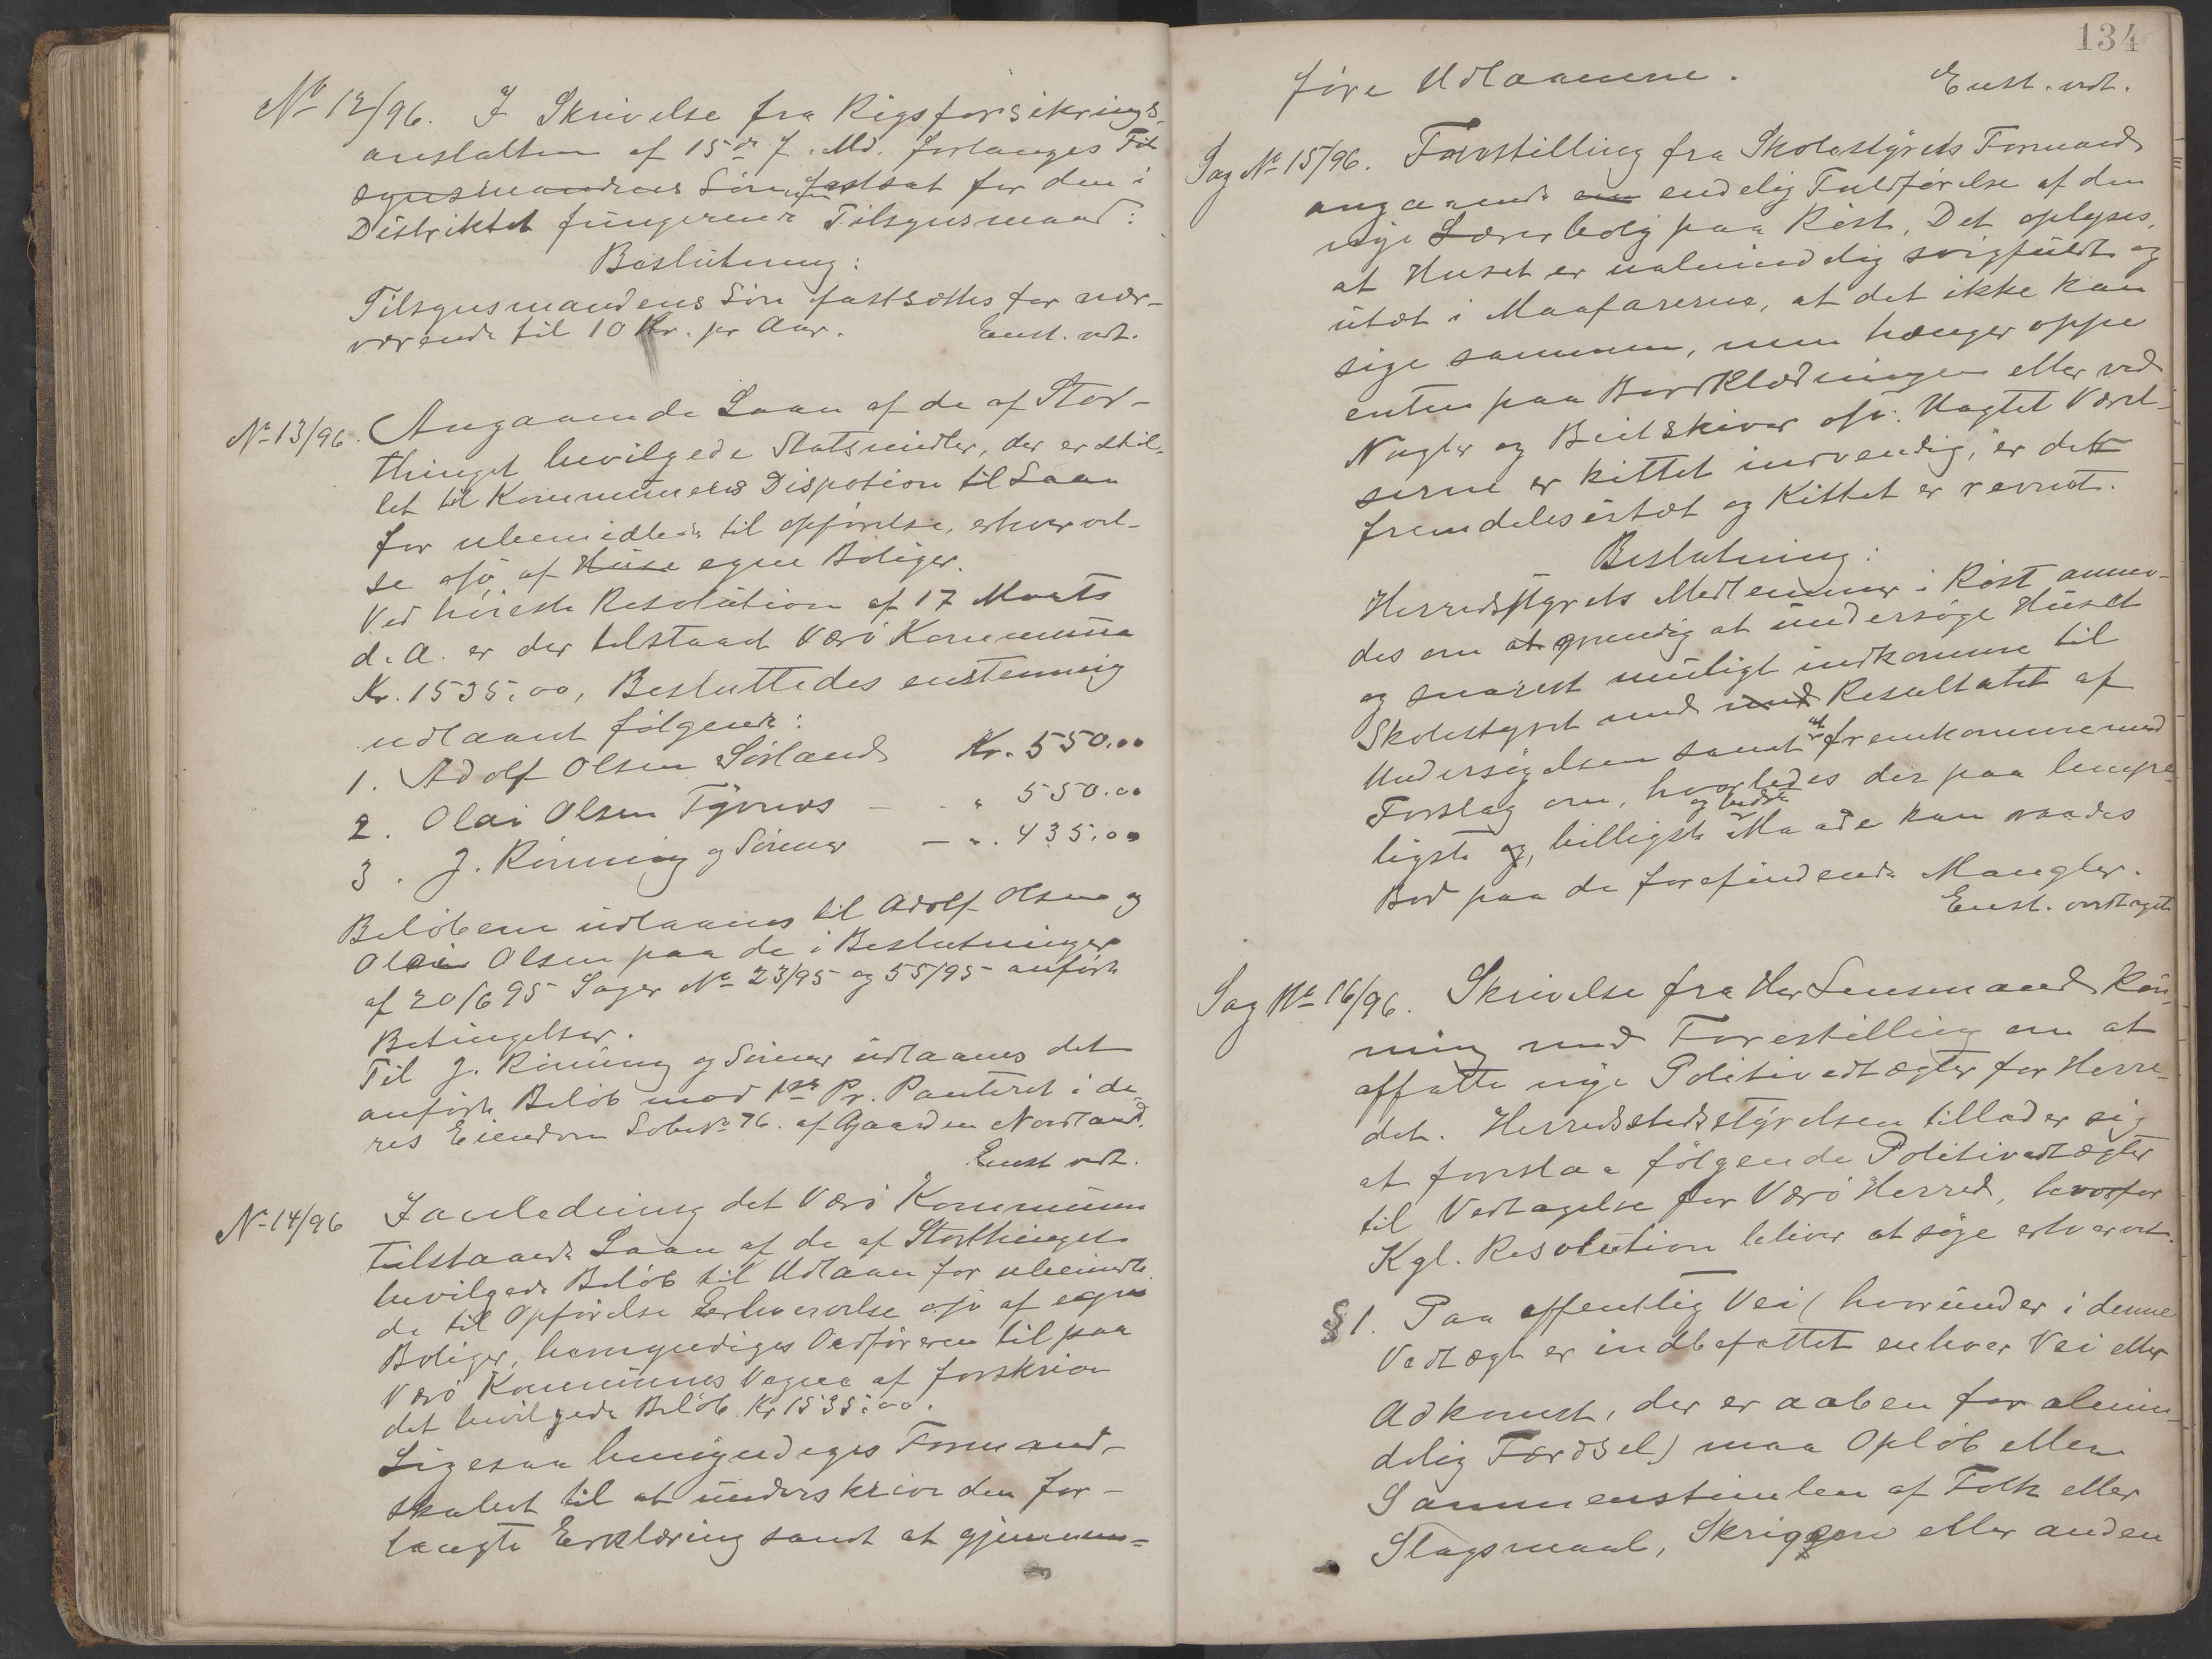 No 12/96. I Skrivelse fra Rigsforsikrings-
anstalten af 15de f. Md. forlanges Til
synsmandens Løn fastsat for den i
Distriktet fungerende Tilsynsmand:
Beslutning:
Tilsynsmandens Løn fastsættes for nær-
værende til 10 Kr. pr Aar. Enst. vdt.
No 13/96. Angaaende Laan af de af Stor-
thinget bevilgede Statsmidler, der er stil-
let til Kommunens Dispotion til Laan
for ubemidlede til opførelse, erhvervel-
se osv af Huse egne Boliger.
Ved høieste Resolution af 17 Marts
d. A. er der tilstaaet Værø Kommune
Kr. 1535.00, Besluttedes enstemmig
udlaant følgende:
1. Adolf Olsen Sørland Kr. 550.00
2. Olai Olsen Tyvnes - - " 550.00
3. J. Rønning og Sønner - - " 435.00
Beløbene udlaanes til Adolf Olsen og
Olai Olsen paa de i Beslutninger
af 20/6 95 Sager No 23/95 og 55/95 anførte
Betingelser.
Til J. Rønning og Sønner udlaanes det
anførte Beløb mod 1ste Pr. Panteret i de-
res Eiendom Løbeno 76. af Gaarden Nordland.
Enst vdt.
No 14/96 I anledning det Værø Kommune
tilstaaede Laan af de af Storthinget
bevilgede Beløb til Udlaan for ubemidle-
de til Opførelse Erhvervelse osv af egne
Boliger, bemyndiges Ordføreren til paa
Værø Kommunes Vegne at forskrive
det bevilgede Beløb Kr 1535.00.
Ligesaa bemyndiges Formand-
skabet til at underskrive den for-
langte Erklæring samt at gjennem-
134
føre Udlaanene. Enst. vdt.
Sag No 15/96. Forestilling fra Skolestyrets Formand
angaaende en endelig Fuldførelse af den
nye Lærerbolig paa Røst, Det oplyses,
at Huset er ualmindelig svigfuldt og
utæt i Maafarerne, at det ikke kan
sige sammen, men hænger oppe
enten paa Bordklædningen eller ved
Nagler og Beitskiver osv. Uagtet Værel-
serne er kittet indvendig, er det
fremdeles utæt og Kittet er revnet.
Beslutning:
Herredsstyrets Medlemmer i Røst anmo-
des om at grundig at undersøge Huset
og snarest muligt indkomme til
Skolestyret med med Resultatet af
Undersøgelsen samt at fremkomme med
Forslag om, hvorledes der paa lempe-
ligste og, billigste og bedste Maade kan raades
Bod paa de forefindende Mangler.
Enst. vedtaget
Sag No 16/96. Skrivelse fra Hr Lensmand Røn-
ning med Forestilling om at
affatte nye Politivedtægter for Herre-
det. Herredsstedsstyrelsen tillader sig
at foreslaa følgende Politivedtægter
til Vedtagelse for Værø Herred, hvorfor
Kgl. Resolution bliver at søge erhvervet.
§ 1. Paa offentlig Vei (hvorunder i denne
Vedtægt er indbefattet enhver Vei eller
Adkomst, der er aaben for almin-
delig Færdsel) maa Opløb eller
Sammenstimlen af Folk eller
Slagsmaal, Skrig eller anden